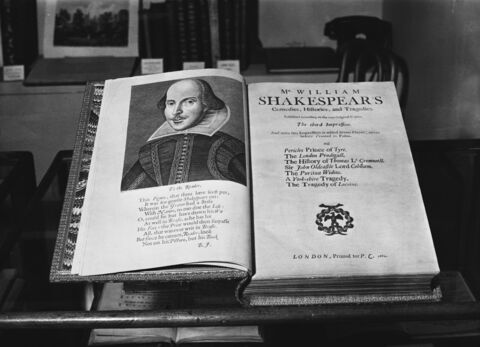 To the Reader.
This Figure, that thou here seest put,
It was for gentle Shakespeare cut:
Wherein the Graver had a strife
With Nature, to out-doe the Life:
O, could he but have drawn his Wit
As well in Brasse, as he has hit
His Face; the Print would then surpasse
All, that was ever writ in Brasse.
But since he cannot, Reader, look
Not on his Picture, but his Book.
B. J.
Mr. WILLIAM
SHAKESPEAR'S
Comedies, Histories, and Tragedies.
Published according to the true Original Copies.
The third Impression.
And unto this Impression is added seven Playes, never
before Printed in Folio.
viz.
Pericles Prince of Tyre.
The London Prodigall.
The History of Thomas Ld. Cromwell.
Sir John Oldcastle Lord Cobham.
The Puritan Widow.
A York-shire Tragedy.
The Tragedy of Locrine.
LONDON, Printed for P. C. 1664.